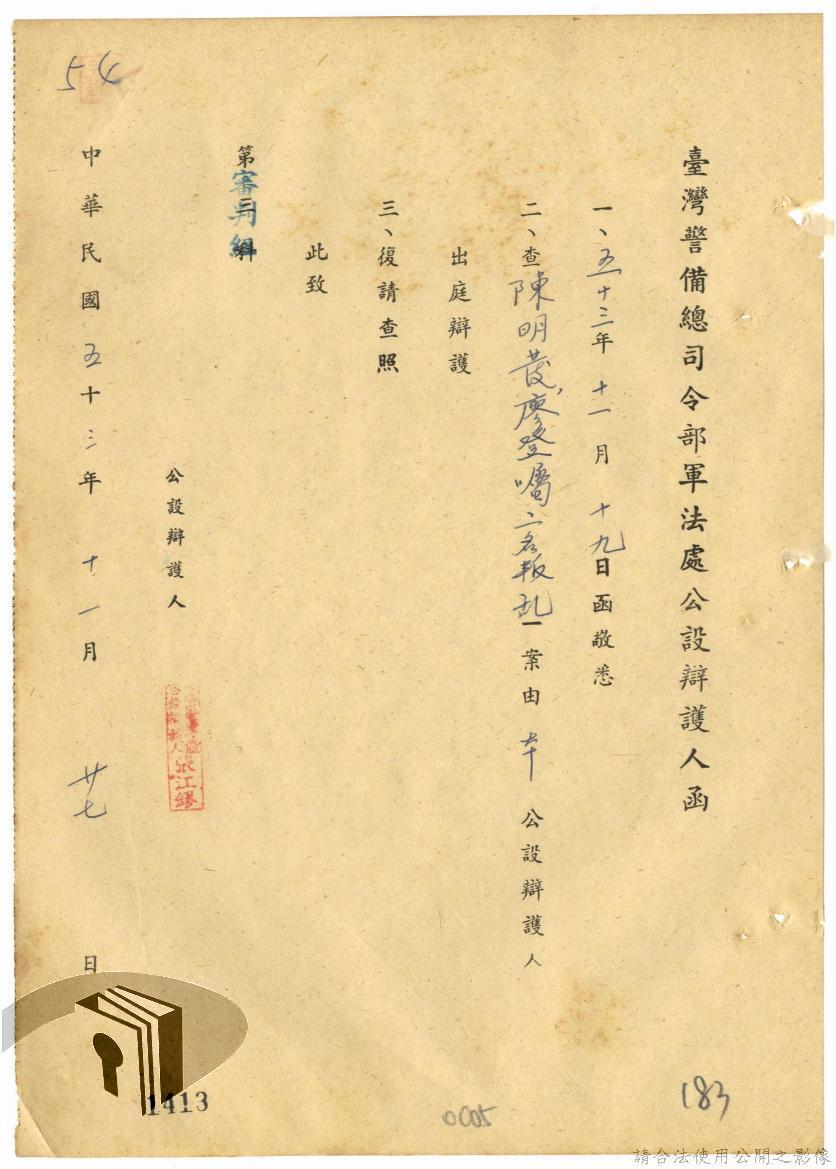 臺灣警備總司令部軍法處公設辯護人函
一、五十三年十一月十九日函敬悉
二、查陳明發、廖登囑二名叛乱一案由本公設辯護人
出庭辯護
三、復請查照
此致
第三科
審判組
公設辯護人
公設辯護人張江鏐
中華民國五十三年十一月廿七日
54
1413
0005
183
請合法使用公開之影像